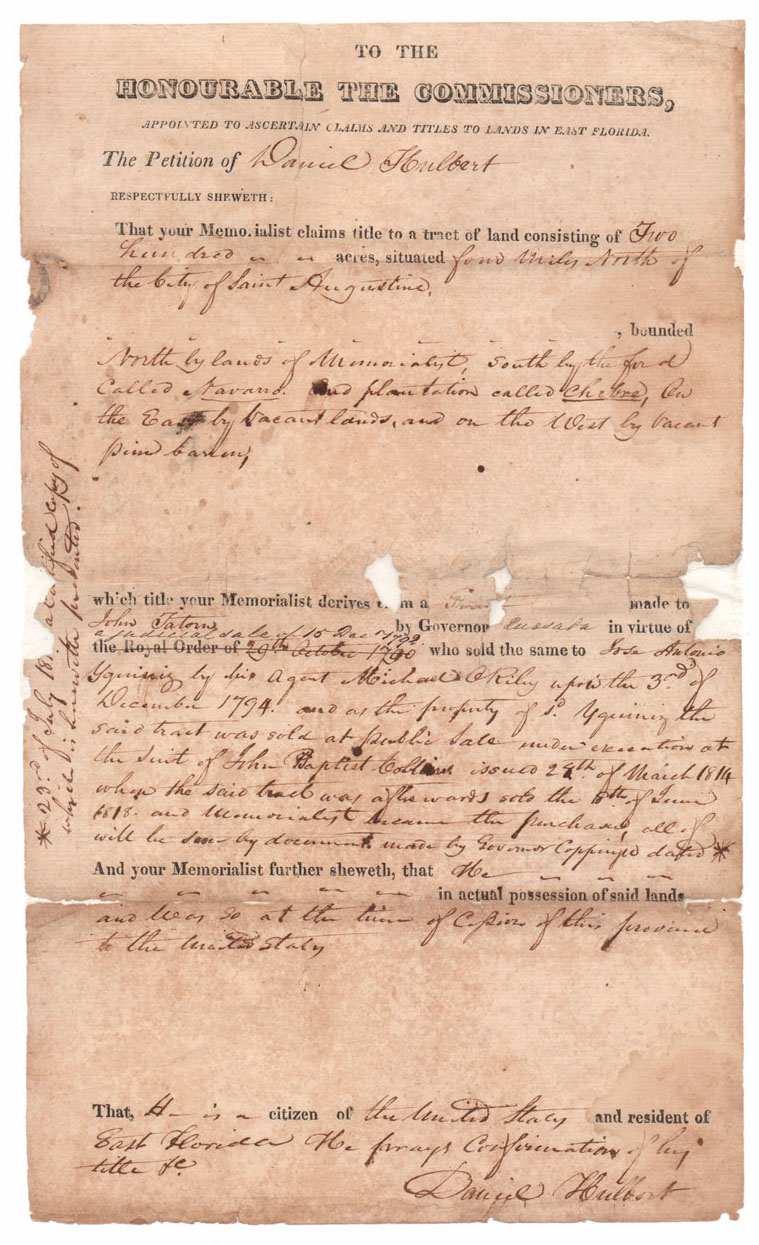 TO THE
HONOURABLE THE COMMISSIONERS,
APPOINTED TO ASCERTAIN CLAIMS AND TITLES TO LANDS IN EAST FLORIDA.
The Petition of Daniel Hulbert
RESPECTFULLY SHEWETH:
That your Memorialist claims title to a tract of land consisting of Two
hundred acres, situated four Miles North of
the City of Saint Augustine,
, bounded
North by lands of Memorialist, South by the ford
Called Navarro. and plantation called Chebre, On
the East by Vacant lands, and on the West by Vacant
pine barren,
which title your Memorialist derives from a made to
John Tatom by Governor Quesada in virtue of
a judicial sale of 15 Dec 1792
the Royal Order of 29th October 1790 who sold the same to Jose Antonio
Yguiniz by his Agent Michael O Riley upon the 3rd of
December 1794. and as the property of sd. Yguiniz the
said tract was sold at public Sale under execution at
the Suit of John Baptist Collins issued 29th of March 1814
when the said tract was afterwards sold the of June
1818. and Memorialist became the purchaser, all of
will be seen by document made by Governor Coppinger dated *
And your Memorialist further sheweth, that He
in actual possession of said lands
and was so at the time of Cession of this province
to the United States
That, He is a citizen of the United States and resident of
East Florida He prays Confirmation of his
title &c.
Daniel Hulbert
* 23rd of July 18. a certified copy of
which is herewith presented.